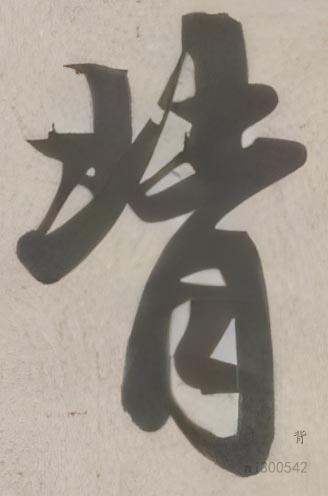 背
背
a1300542